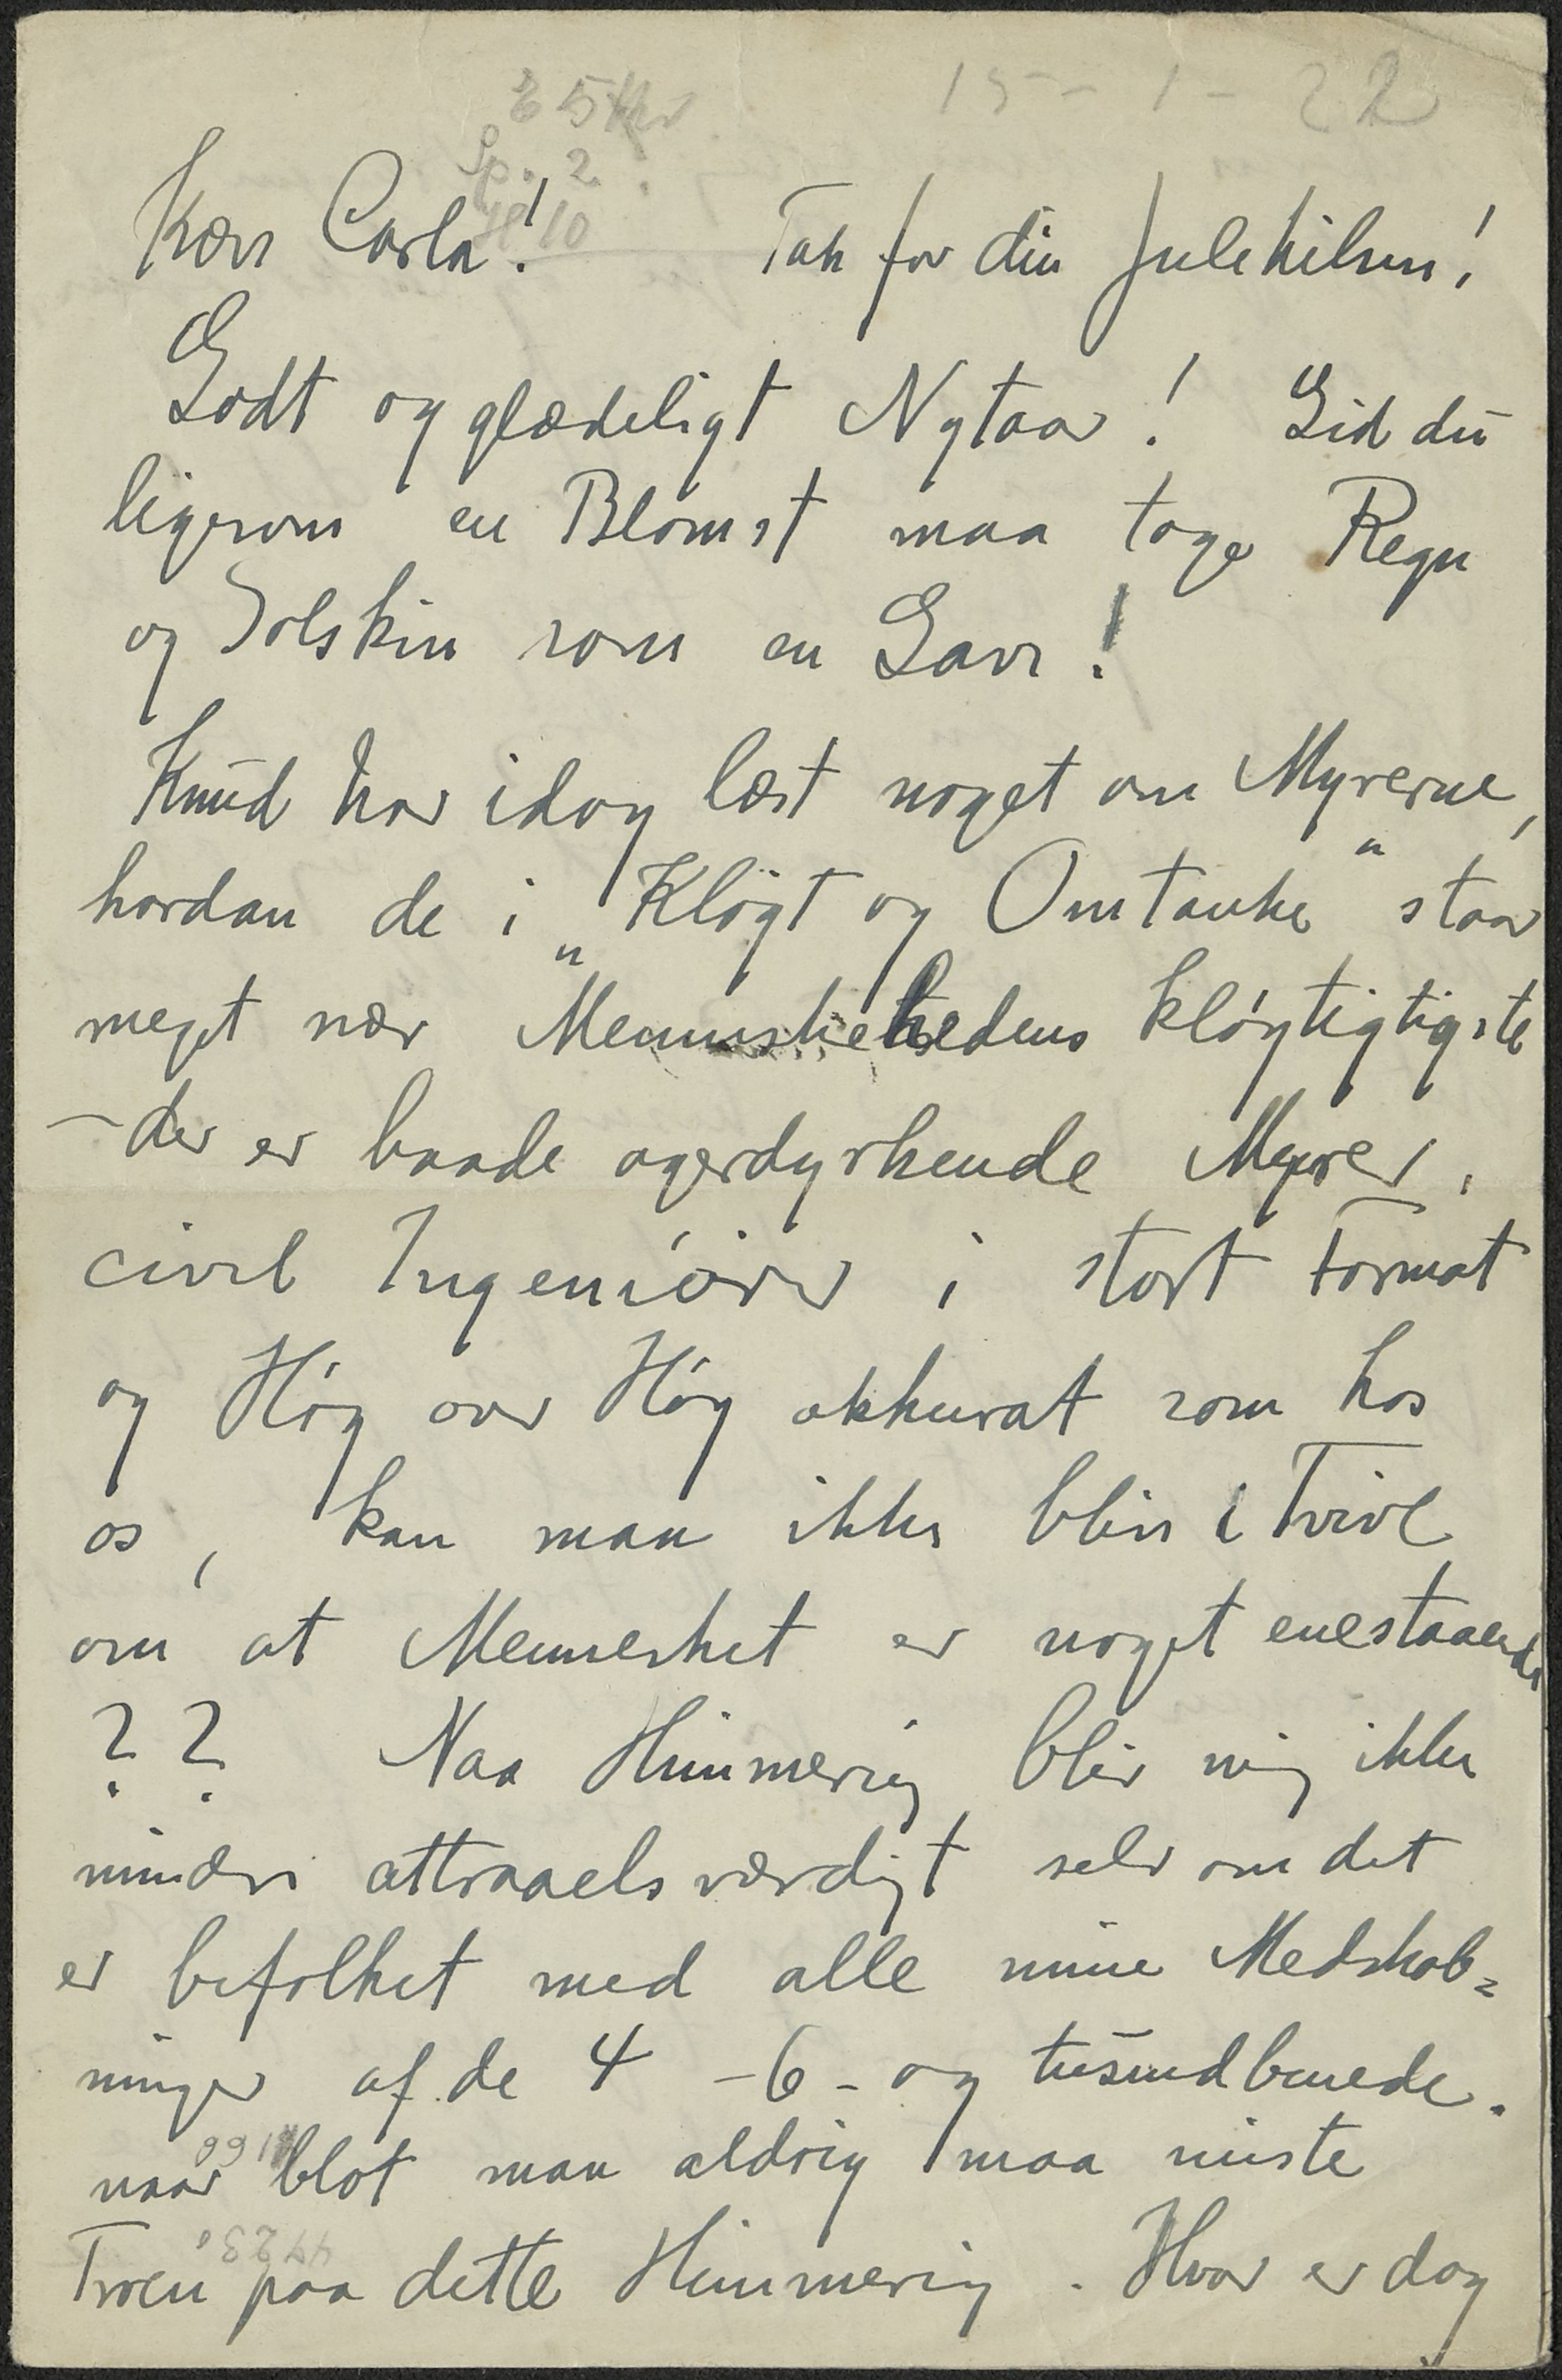 35 Kr
15-1-22
Sp. 2
Kære Carla! Tak for din Julehilsen!
Godt og glædeligt Nytaar! Gid du
ligesom en Blomst maa tage Regn
og Solskin som en Gave!
Knud har idag læst noget om Myrerne,
hordan de i „Kløgt og Omtanke" staar
meget nær Menneskehedens kløgtigtigste
- der er baade agerdyrkende Myrer,
civil Ingeniører i stort Format
og Høg over Høg akkurat som hos
os, kan man ikke blive i Tvivl
om at Mennesket er noget enestaaende
?? Naa Himmerig blir mig ikke
mindre attraaelsværdigt selv om det
er befolket med alle mine Medskab=
ninger af de 4 - 6 - og tusindbenede.
naar blot man aldrig maa miste
Troen paa dette Himmerig. Hvor er dog